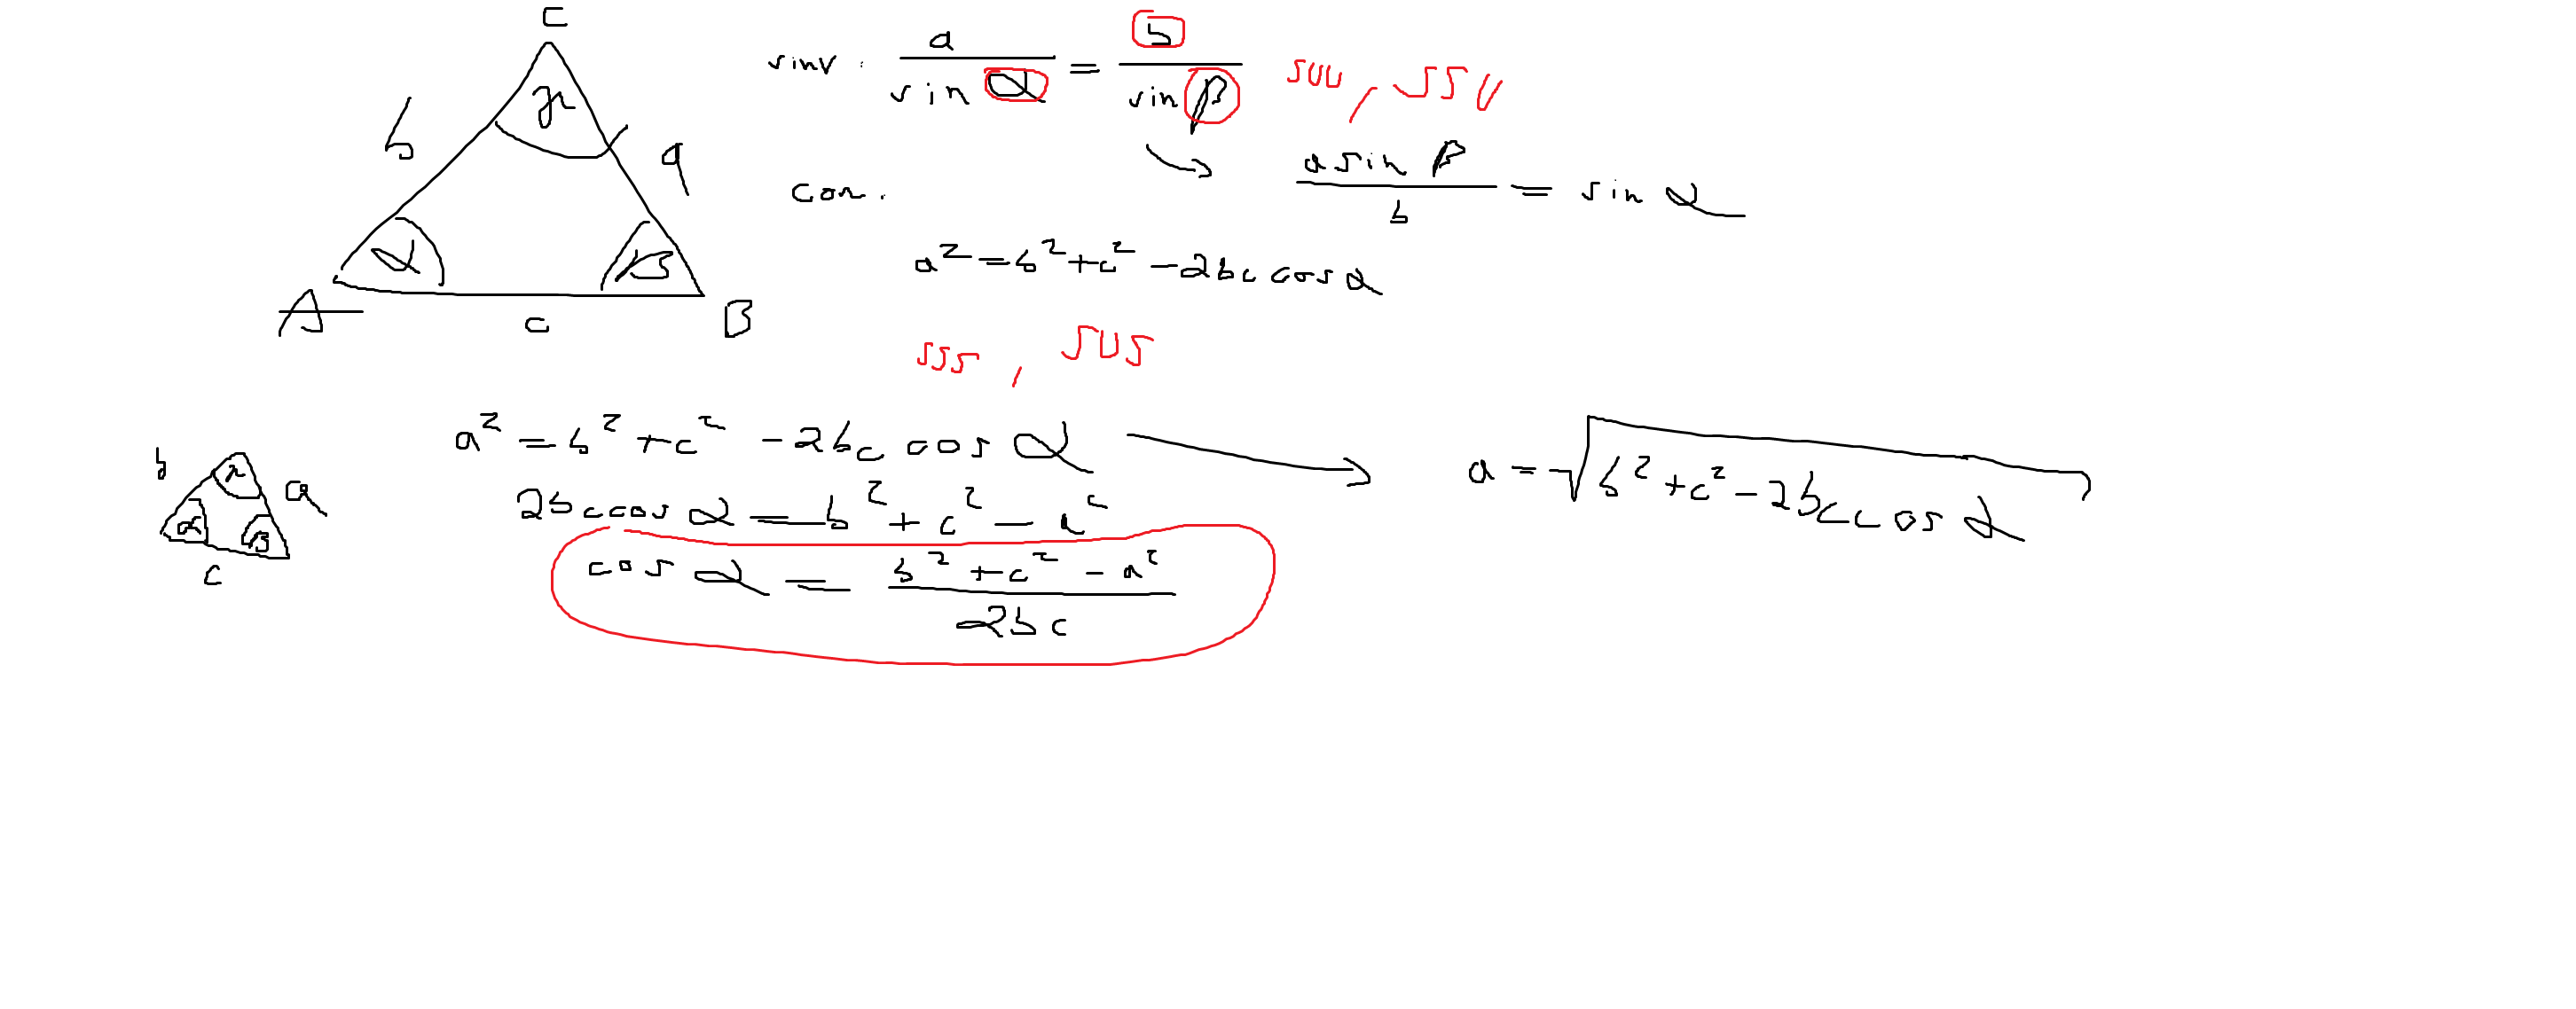 C
γ
b
a
α
β
A
c
B
sinv. a / sin α = b / sin β
suu, ssu
a sin β / b = sin α
cos.
a² = b² + c² - 2bc cos α
sss, sus
a² = b² + c² - 2bc cos α
a = √b² + c² - 2bc cos α
2bc cos α = b² + c² - a²
cos α = b² + c² - a² / 2bc
b
γ
a
α
β
c